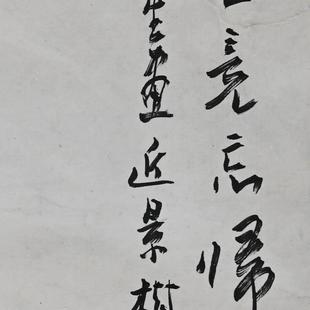 竟忘歸
畫近景樹